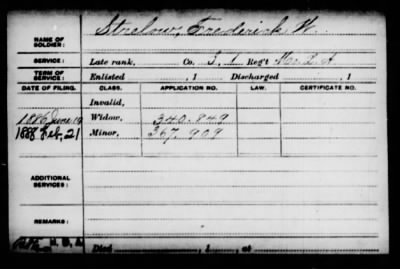 NAME OF SOLDIER: Strelow, Frederick W.
SERVICE: Late rank, Co. I, 1 Reg't Mo. L. A.
TERM OF SERVICE: Enlisted , 1 Discharged , 1
DATE OF FILING. CLASS. APPLICATION NO. LAW. CERTIFICATE NO.
Invalid,
1886 June 19 Widow, 340.849
1888 Feb, 21 Minor, 367.909
ADDITIONAL SERVICES:
REMARKS:
Died , 1 , at